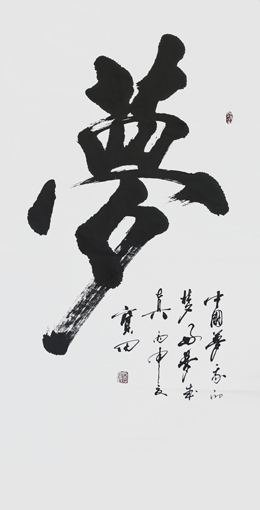 夢
中國夢我的
梦好夢成
真丙申之
寶田